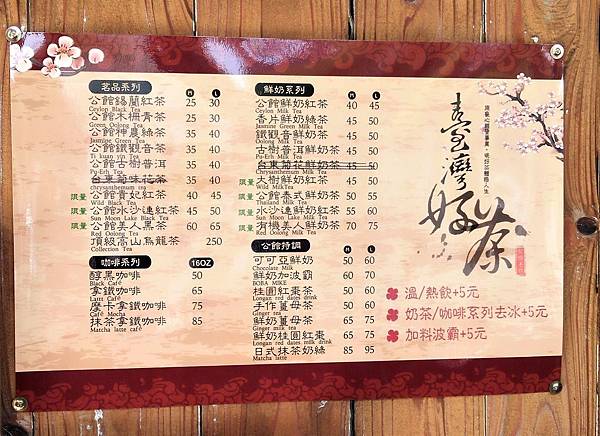 茗品系列 M L
公館錫蘭紅茶 25 30
Ceylon Black Tea
公館木柵青茶 25 30
Green Oolong Tea
公館神農綠茶 35 40
Jasmine Green Tea
公館鐵觀音茶 35 40
Ti kuan yin Tea
公館古樹普洱 35 40
Pu-Erh Tea
台東菊味花茶 35 40
chrysanthemum tea
限量 公館貴妃紅茶 40 45
Wild Black Tea
限量 公館水沙連紅茶 45 50
Sun Moon Lake Black Tea
限量 公館美人黑茶 60 65
Red Oolong Tea
頂級高山烏龍茶 250
Collection Tea
咖啡系列 16OZ
醇黑咖啡 50
Black Café
拿鐵咖啡 65
Latt Café
摩卡拿鐵咖啡 75
Café Mocha
抹茶拿鐵咖啡 85
Matcha latte café
鮮奶系列 M L
公館鮮奶紅茶 40 45
Ceylon Milk Tea
香片鮮奶綠茶 45 50
Jasmine Green Milk Tea
鐵觀音鮮奶茶 45 50
Oolong Milk Tea
古樹普洱鮮奶茶 45 50
Pu-Erh Milk Tea
台東菊花鮮奶茶 45 50
Chrysanthemum Milk Tea
限量 大樹鮮奶紅茶 45 50
Wild MilkTea
限量 公館泰式鮮奶茶 50 55
Thailand Milk Tea
限量 水沙連鮮奶紅茶 55 60
Sun Moon Lake Milk Tea
限量 有機美人鮮奶茶 70 75
Red Oolong Milk Tea
公館特調 M L
可可亞鮮奶 50 60
Chocolate Milk
鮮奶加波霸 50 60
BOBA MIKE
桂圓紅棗茶 50 60
Longan red dates drink
手作薑母茶 50 60
Ginger tea
鮮奶薑母茶 65 75
Ginger milk tea
鮮奶桂圓紅棗 65 75
Longan red dates milk drink
日式抹茶奶綠 85 95
Matcha latte
臺灣好茶
溫/熱飲+5元
奶茶/咖啡系列去冰+5元
加料波霸+5元